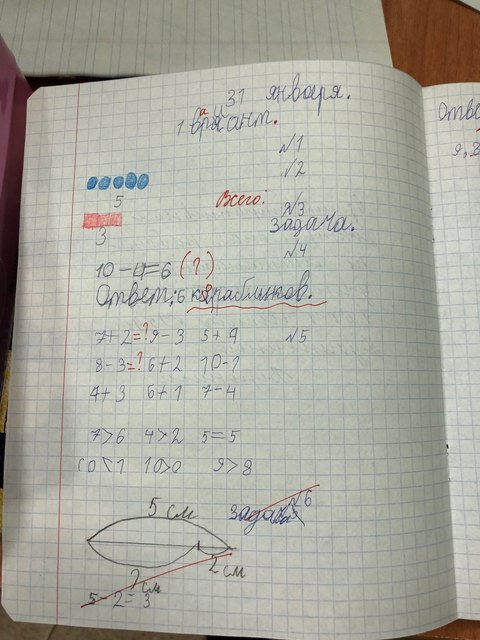 31 января.
1 вариант.
№1
№2
5
Всего:
№3
3
задача.
№4
10-4=6 (?)
Ответ: 6 карабликов.
7+2=? 9-3 5+4 №5
8-3=? 6+2 10-1
4+3 6+1 7-4
7>6 4>2 5=5
10<1 10>0 9>8
№6
5 см задача
2 см
7 см
5-2=3
Отве